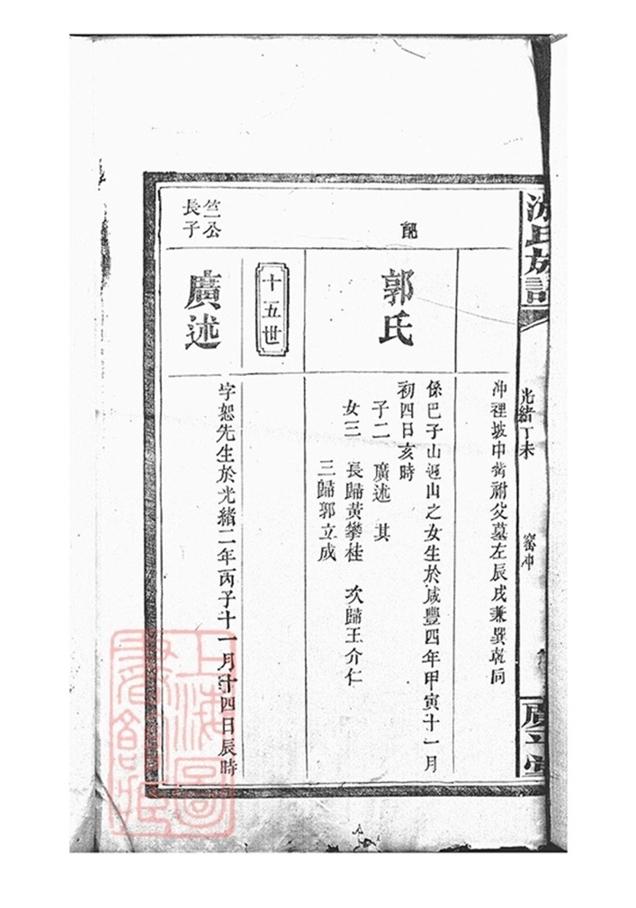 氏族譜
光緒丁未
沖裡坡中
祔父墓左辰戌兼巽乾同
配
郭氏
係巴子山
山之女生於咸豐四年甲寅十一月
初四日亥時
子二 廣述 其
女三 長歸黃攀桂 次歸王介仁
三歸郭立成
十五世
竺公
長子
廣述
字恕先生於光緒二年丙子十一月十四日辰時
上海圖
書館藏